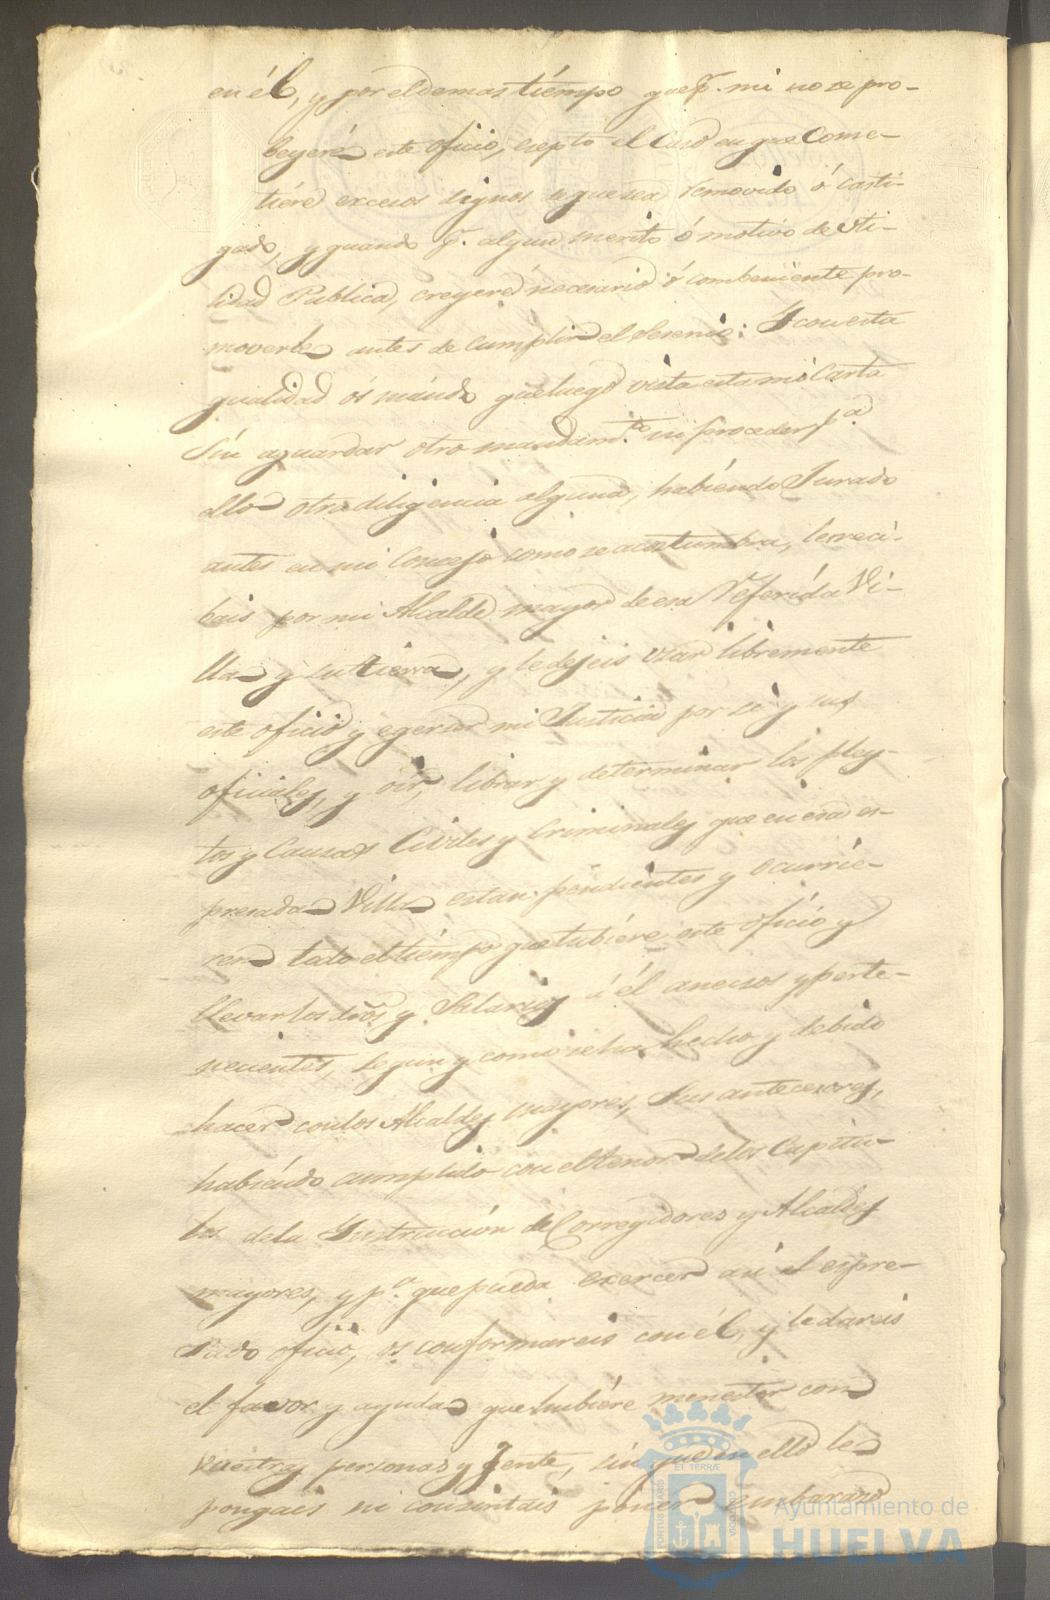 en él, y por el demas tiempo que p.r mi no se pro-
beyeré este oficio, esepto el Caso en que Come-
tiére excesos dignos de que sea removido ó casti-
gado, y quando p.r algun merito ó motivo de Uti-
lidad Publica, creyeré necesario ó combeniente pro-
moverle antes de Cumplir el Sexenio: Y con esta
qualidad ós mándo que luego vista esta mi Carta
Sin aguardar otro mandam.to ni proceder p.a
ello otra diligencia alguna, habiéndo Jurado
antes en mi Concejo como se acostumbra, le reci-
bais por mi Alcalde mayor de esa Referida Vi-
lla y su tierra, y le dejeis Usar libremente
este oficio y egercer mi Justicia por si y sus
oficiales, y oir, librar y determinar los pley-
tos y Causas Civiles y Criminales que en esa es-
presada Villa estan pendientes y ocurrie-
ren todo el tiémpo que tubiére este oficio y
llevar los dros y Salarios á él anecsos y perte-
necientes, segun y como se ha hecho y debido
hacer con los Alcaldes mayores, Sus antecesores,
habiéndo cumplido con el tenor de los Capitu-
los de la Instrucción de Corregidores y Alcaldes
mayores, y p.a que pueda exercer asi el espre-
sado oficio, os conformareis con él, y le dareis
el favor y ayuda que hubiére menester con
vuestras personas y Gente, sin que en ello le
pongais ni consintais poner embarazo
PORTUS MARIS
ET TERRÆ
CUSTODIA
Ayuntamiento de
HUELVA